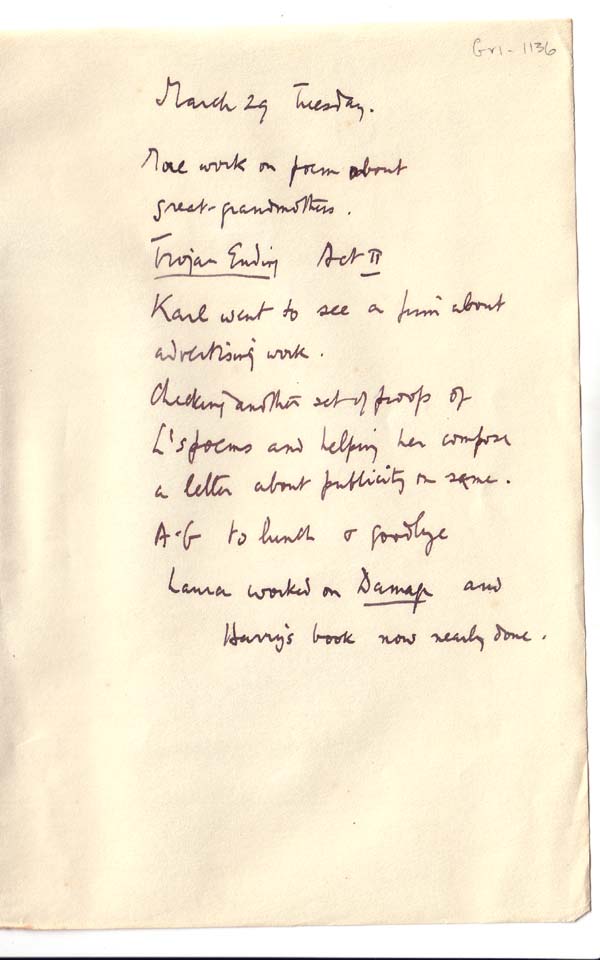 Gr1-1136
March 29 Tuesday.
More work on poem about
great-grandmothers.
Trojan Ending Act II
Karl went to see a firm about
advertising work.
Checking another set of proofs of
L's poems and helping her compose
a letter about publicity on same.
A-G to lunch & goodbye
Laura worked on Damage and
Harry's book now nearly done.